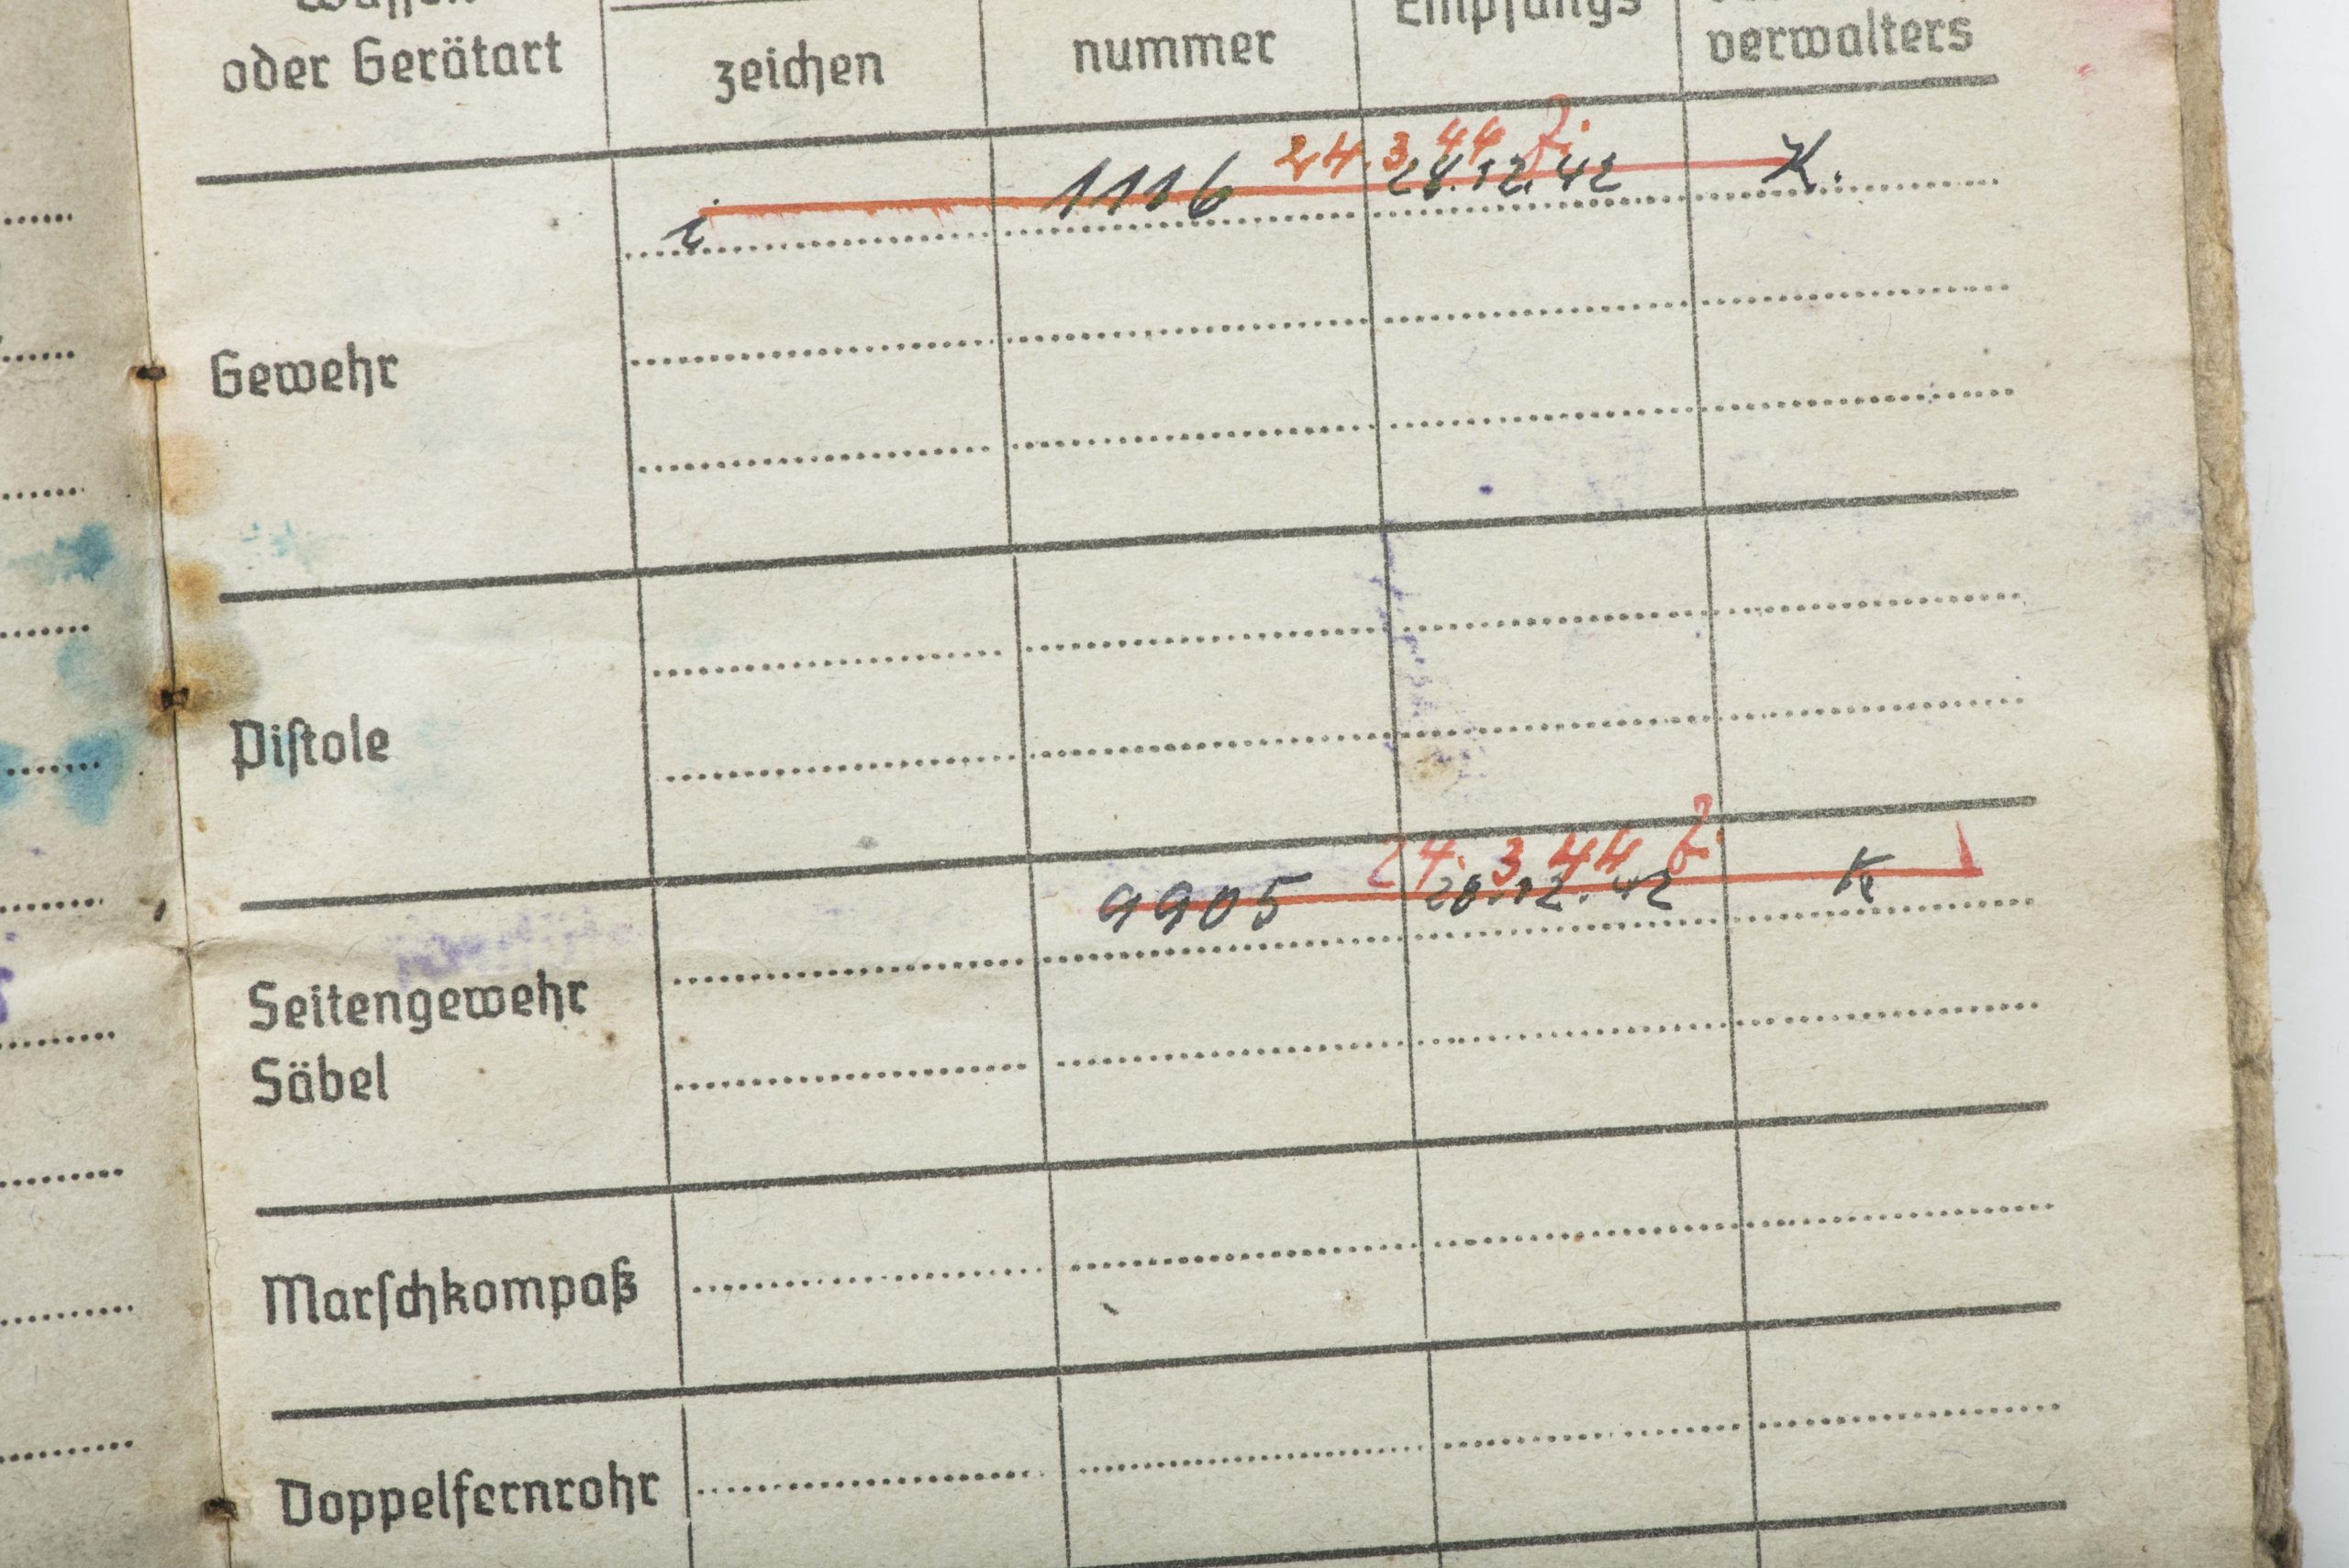 Waffen-
oder Gerätart
zeichen
nummer
Empfangs
verwalters
24.3.44
i 1116 28.12.42 K.
Gewehr
Piſtole
24.3.44
9905 28.12.42 K
Seitengewehr
Säbel
Marſchkompaß
Doppelfernrohr